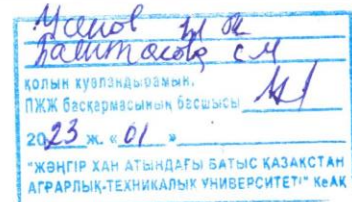 Усенов
қолын куәландырамын.
ПЖЖ басқармасының басшысы
2023 ж. «01» »
"ЖӘҢГІР ХАН АТЫНДАҒЫ БАТЫС ҚАЗАҚСТАН
АГРАРЛЫҚ-ТЕХНИКАЛЫҚ УНИВЕРСИТЕТІ" КеАҚ